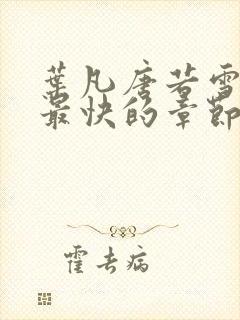 葉凡唐若雪
最快的章節
霍去病